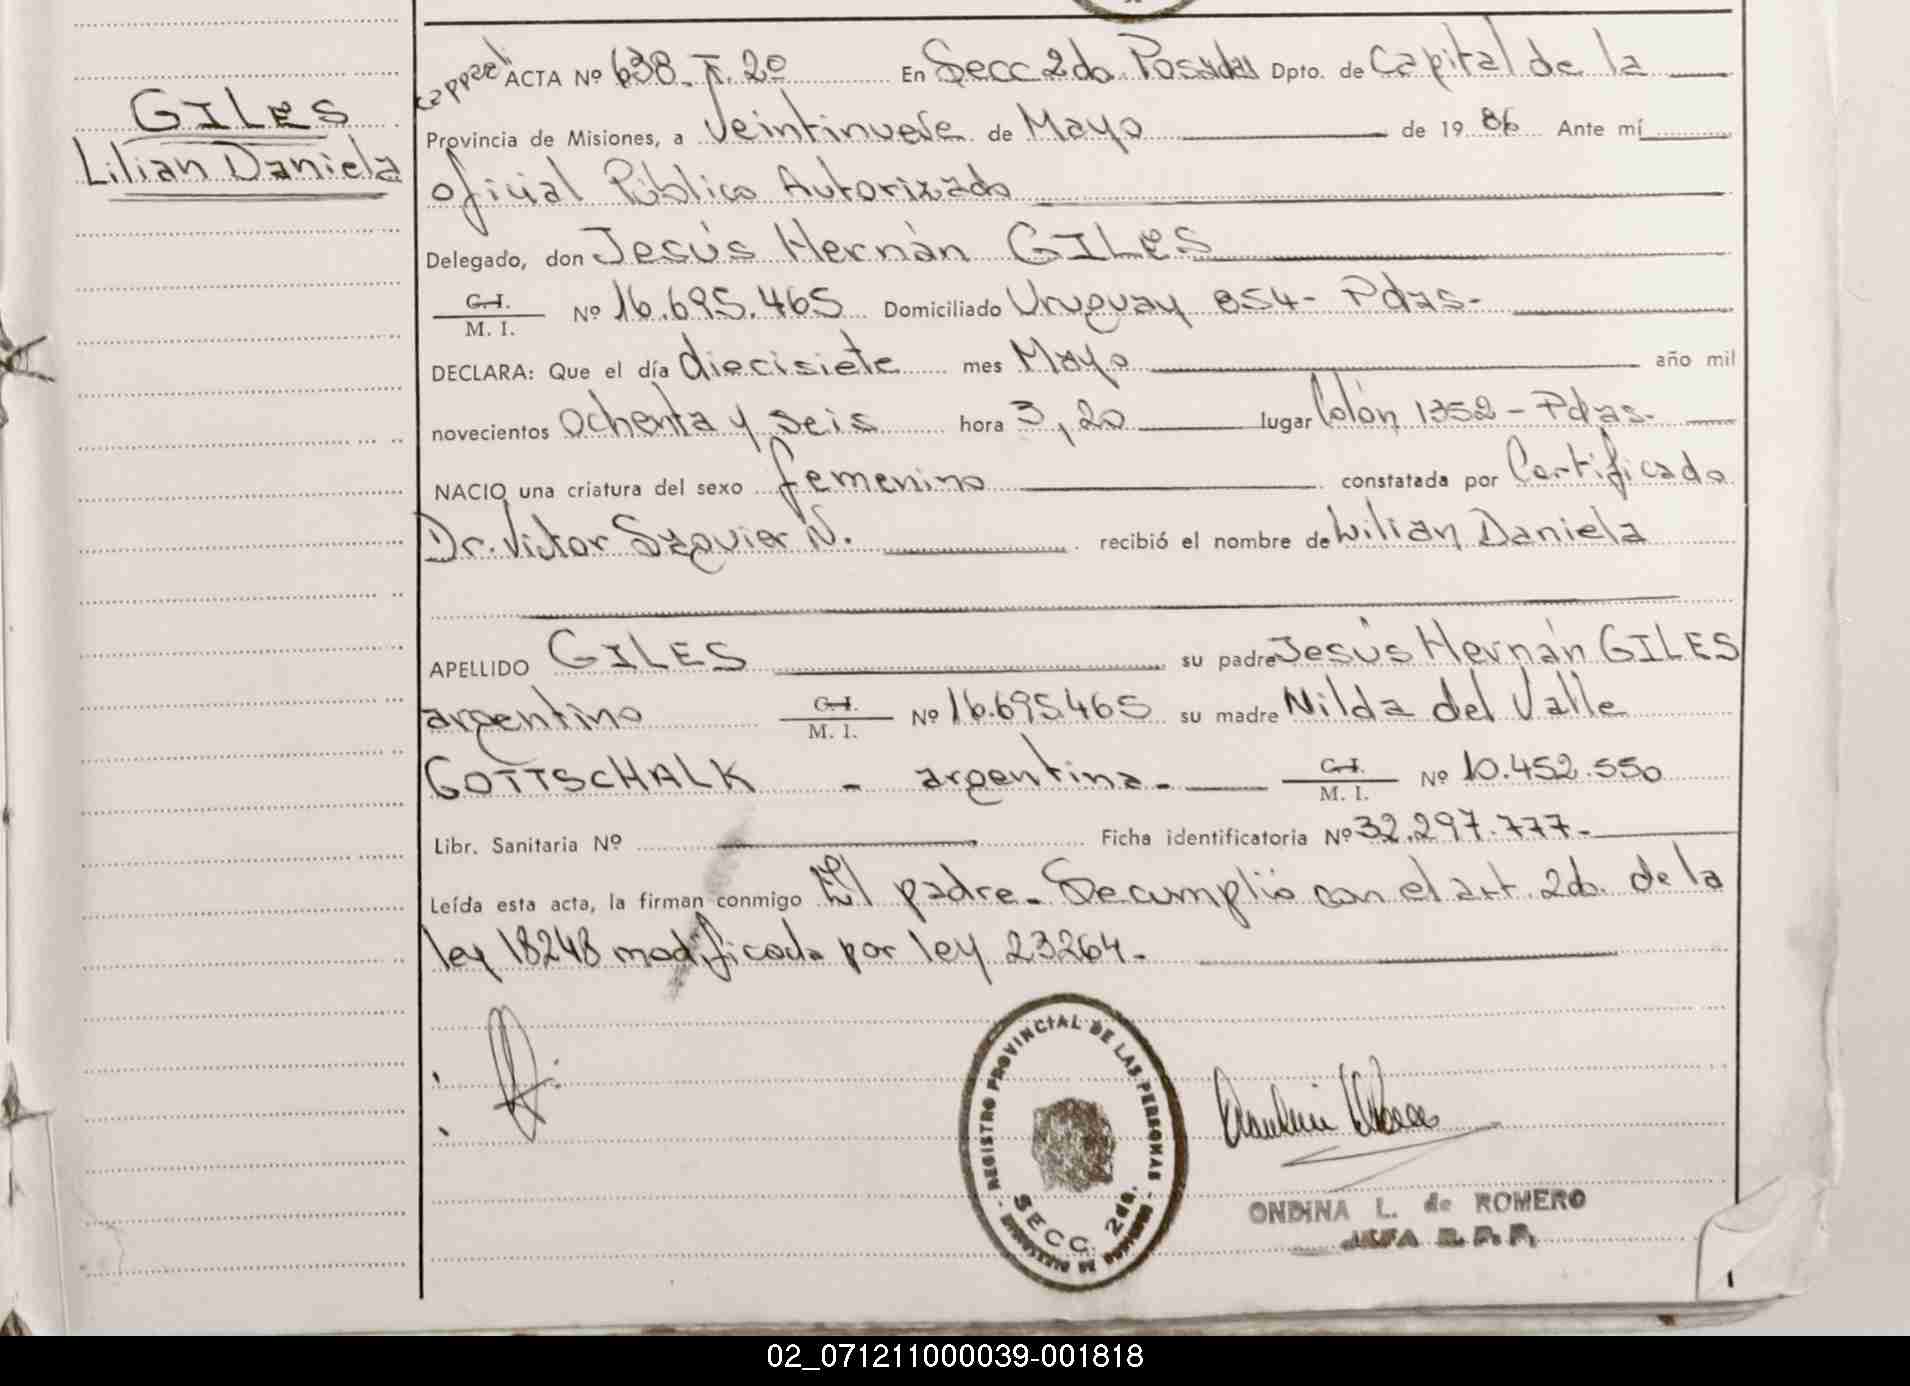 GILES
Lilian Daniela
ACTA Nº 638. T. 2º En Secc 2da. Posadas Dpto. de Capital de la
Provincia de Misiones, a Veintinueve de Mayo de 1986 Ante mí
oficial Público Autorizado
Delegado, don Jesús Hernán GILES
C. I.
M. I. Nº 16.695.465 Domiciliado Uruguay 854- Pdas-
DECLARA: Que el día diecisiete mes Mayo año mil
novecientos ochenta y seis hora 3,20 lugar Colón 1352 - Pdas-
NACIO una criatura del sexo femenino constatada por Certificado
Dr. Victor N. recibió el nombre de Lilian Daniela
APELLIDO GILES su padre Jesús Hernán GILES
argentino C. I.
M. I. Nº 16.695.465 su madre Nilda del Valle
GOTTSCHALK - argentina- C. I.
M. I. Nº 10.452.550
Libr. Sanitaria Nº Ficha identificatoria Nº 32.297.777-
Leída esta acta, la firman conmigo El padre. Se cumplió con el art. 2do. de la
ley 18248 modificada por ley 23264.
REGISTRO PROVINCIAL DE LAS PERSONAS
SECC. 2da.
ONDINA L. de ROMERO
JEFA R. P. P.
02_071211000039-001818